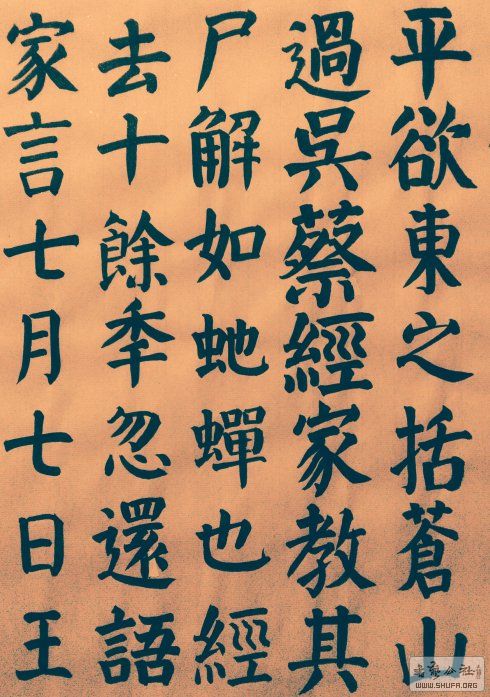 平欲東之括蒼山
過吳蔡經家教其
尸解如虵蟬也經
去十餘秊忽還語
家言七月七日王
WWW.SHUFA.ORG